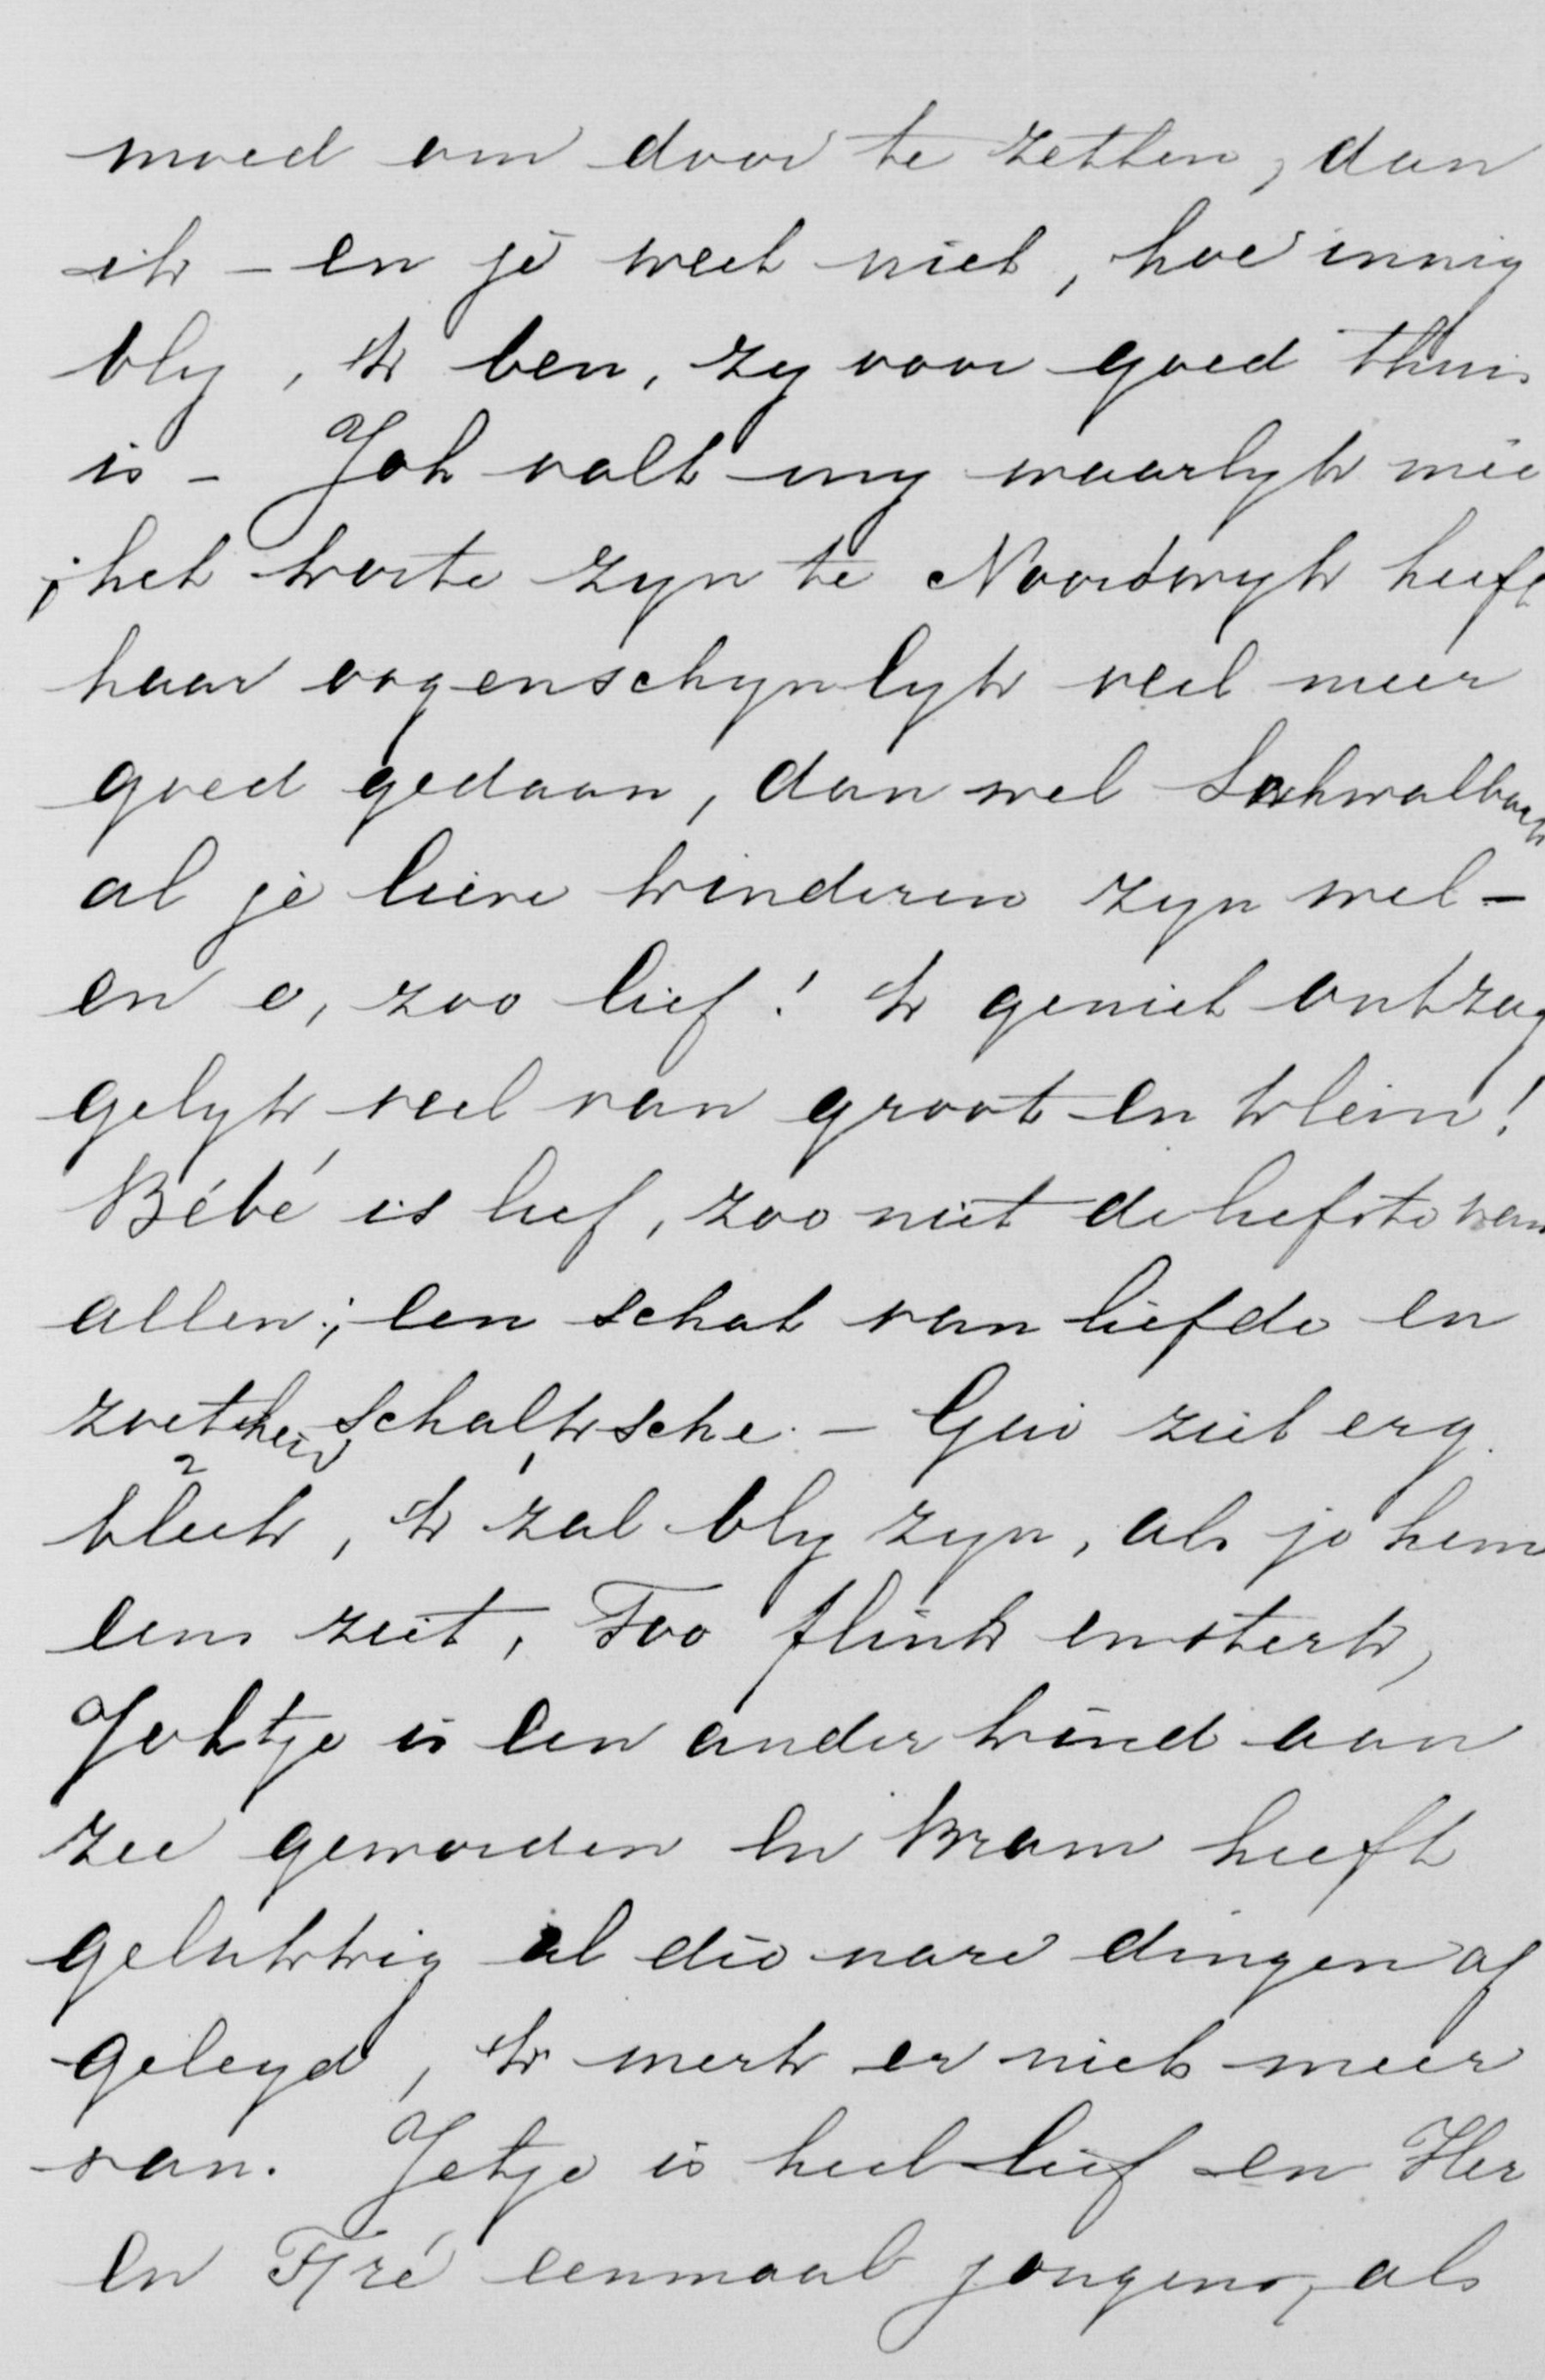 moed om door te zetten, dan
ik – en je weet niet, hoe innig
bly, ik ben, zy voor goed thuis
is – Joh valt my waarlyk mee
; het korte zyn te Noordwyk heeft
haar oogenschynlyk veel meer
goed gedaan, dan wel Schwalbach
al je lieve kinderen zyn wel –
en o, zoo lief! Ik geniet ontzag
gelyk veel van groot en klein!
Bébé is lief, zoo niet de liefste van
allen; een schat van liefde en
zoetheid schalksche. – Gui ziet erg
bleek, ik zal bly zyn, als je hem
eens ziet, Too flink en sterk,
Johtje is een ander kind aan
zee geworden en Bram heeft
gelukkig al die nare dingen af
gelegd, ik merk er niets meer
van. Jetje is heel lief en Her
en Fré eenmaal jongens, als